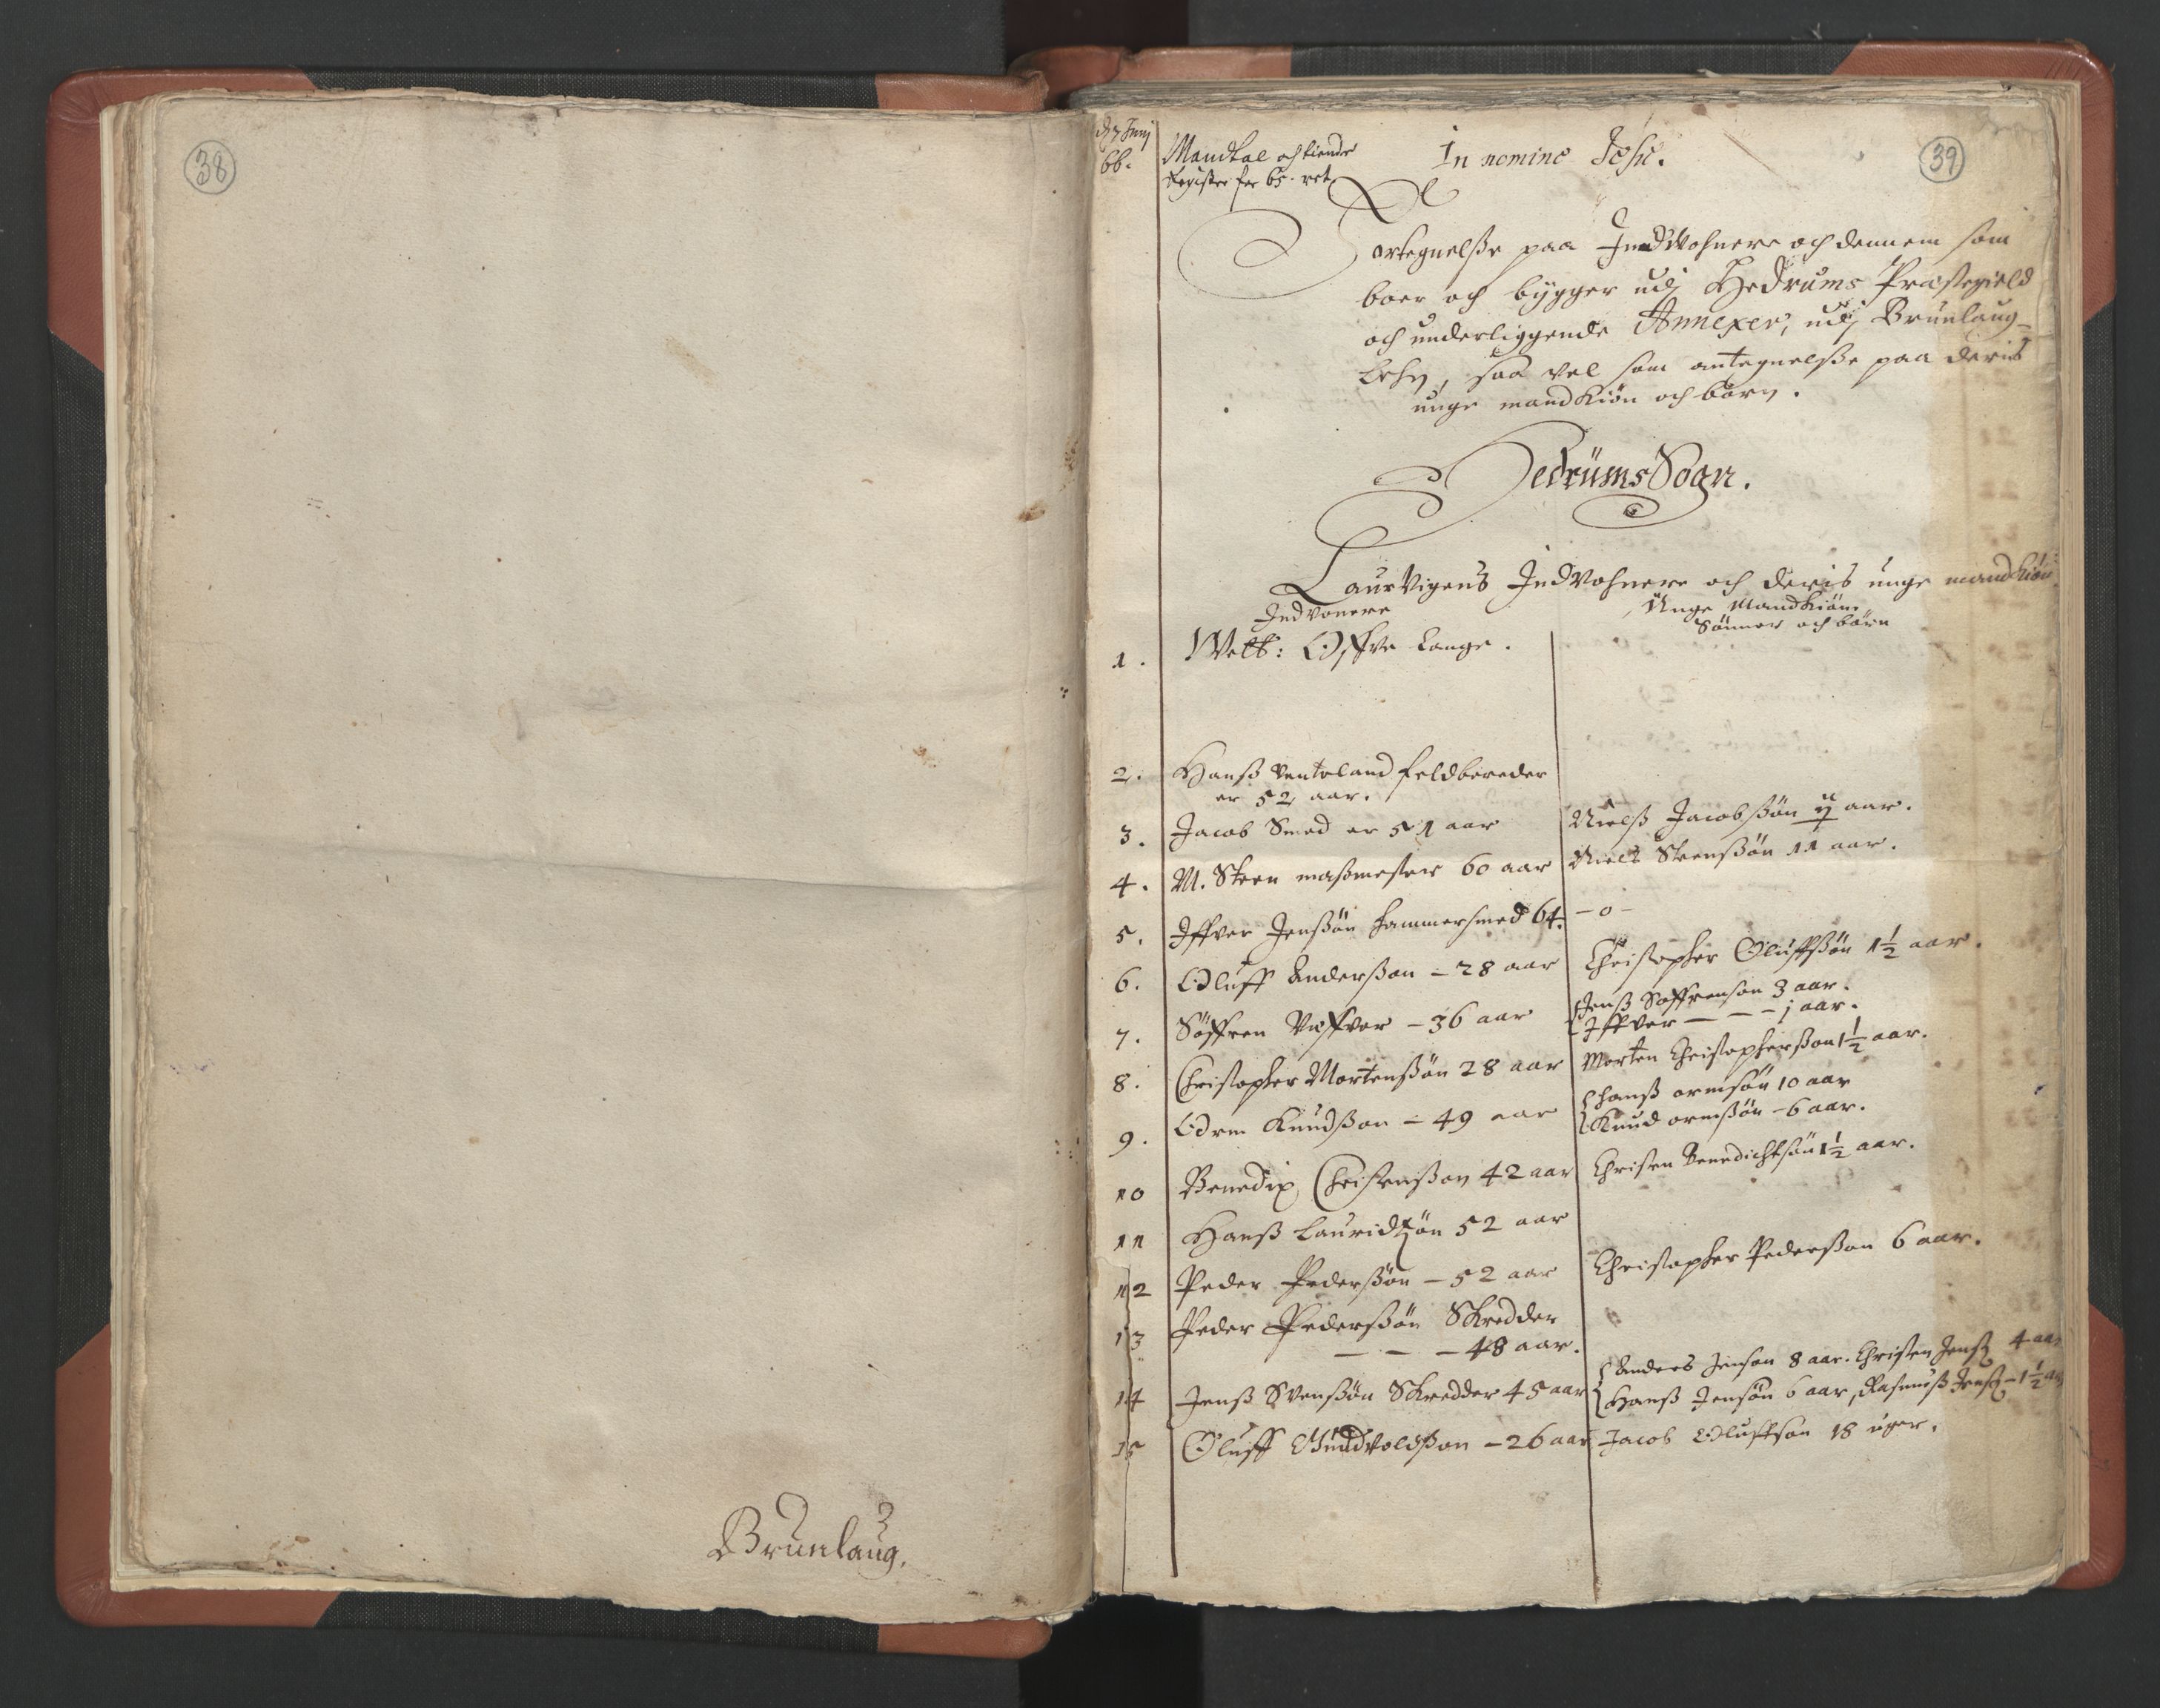 38
Brunlaug.
39
66.
Mandtal och tiende
Register for 65.
In nomine Jesu.
Fortegnelsse paa Indvohnere och dennem som
boer och bygger udj Hedrums Præstegield
och underliggende Annexer, udj Brunlaug-
Lehn, saa vel som antegnelsse paa deris
unge mandkiön och börn.
Hedrums Sogn.
Laurvigens Indvohnere och deris unge mandkiön
Indvonere
Unge Mandkiön
Sönner och börn
1. Welb: Offve Lange.
2. Hanß Ventoland feldbereder
er 52 aar.
3. Jacob Smed er 51 aar
Nielß Jacobßön aar.
4. M. Steen maßmester 60 aar
Niels Steenßön 11 aar.
5. Iffver Jenßön hammersmed 64.
- o -
6. Oluff Anderßon - 28 aar
Christopher Oluffßön 1½ aar.
7. Söffren Væffver - 36 aar
Jenß Soffrenson 3 aar.
Iffver - - - 1 aar.
8. Christopher Mortenßön 28 aar
Morten Christopherßon 1½ aar.
9. Orm Knudßon - 49 aar
Hanß ormsön 10 aar
Knud ormßön - 6 aar.
10 Benedix Christenßon 42 aar
Christen Benedichtsön 1½ aar.
11 Hanß Lauridtzön 52 aar
12 Peder Pederßön - 52 aar
Christopher Pederßon 6 aar.
13 Peder Pederßön Skredder
- - - 48 aar.
14 Jenß Svenßön Skredder 45 aar
Anders Jenson 8 aar. Christen Jenß 4 aar
Hanß Jensön 6 aar, Rasmuß Jenß - 1½ aar
15 Oluff Gundvoldßon - 26 aar
Jacob Oluffson 18 uger.